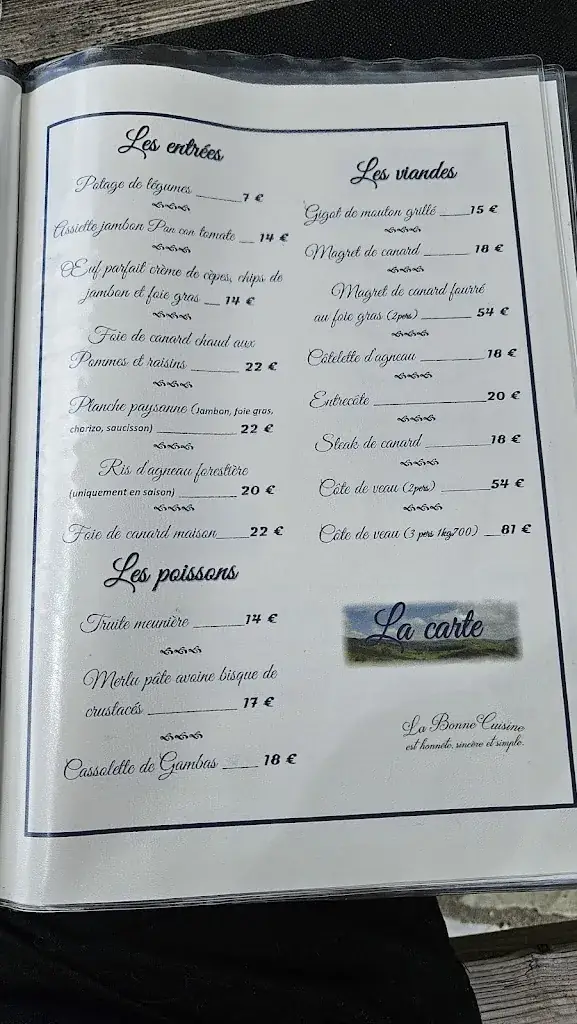 Les entrées
Potage de légumes 7 €
Assiette jambon Pan con tomate 14 €
Œuf parfait crème de cèpes, chips de
jambon et foie gras 14 €
Foie de canard chaud aux
Pommes et raisins 22 €
Planche paysanne (Jambon, foie gras,
chorizo, saucisson) 22 €
Ris d'agneau forestière
(uniquement en saison) 20 €
Foie de canard maison 22 €
Les poissons
Truite meunière 14 €
Merlu pâte avoine bisque de
crustacés 17 €
Cassolette de Gambas 18 €
Les viandes
Gigot de mouton grillé 15 €
Magret de canard 18 €
Magret de canard fourré
au foie gras (2pers) 54 €
Côtelette d'agneau 18 €
Entrecôte 20 €
Steak de canard 18 €
Côte de veau (2pers) 54 €
Côte de veau (3 pers 1kg700) 81 €
La carte
La Bonne Cuisine
est honnête, sincère et simple.